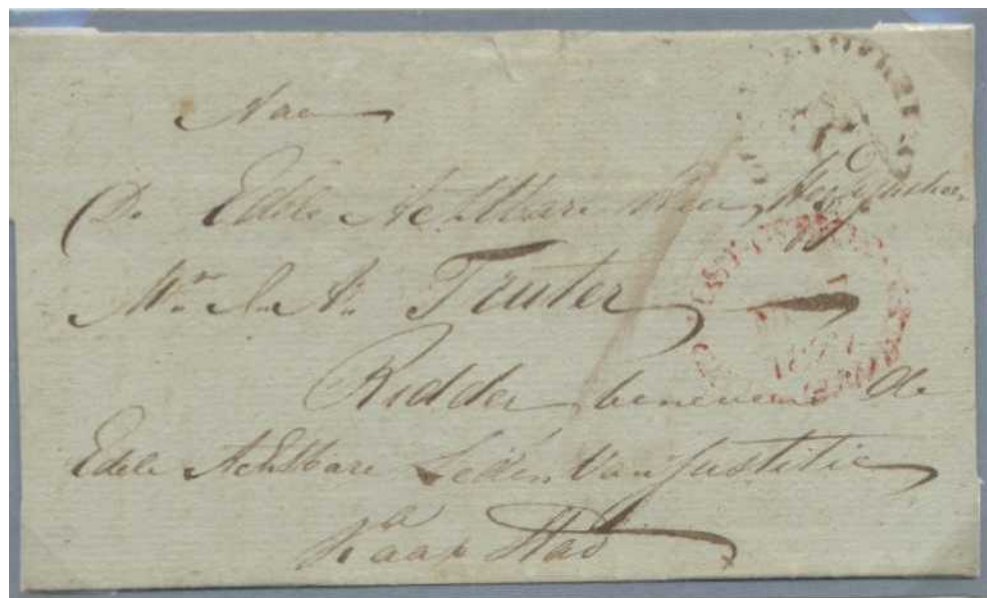 Aan
De Edele Achtbare Heer
Mr. J. A. Truter
Ridder benevens de
Edele Achtbare Leden Van Justitie
Kaap Stad